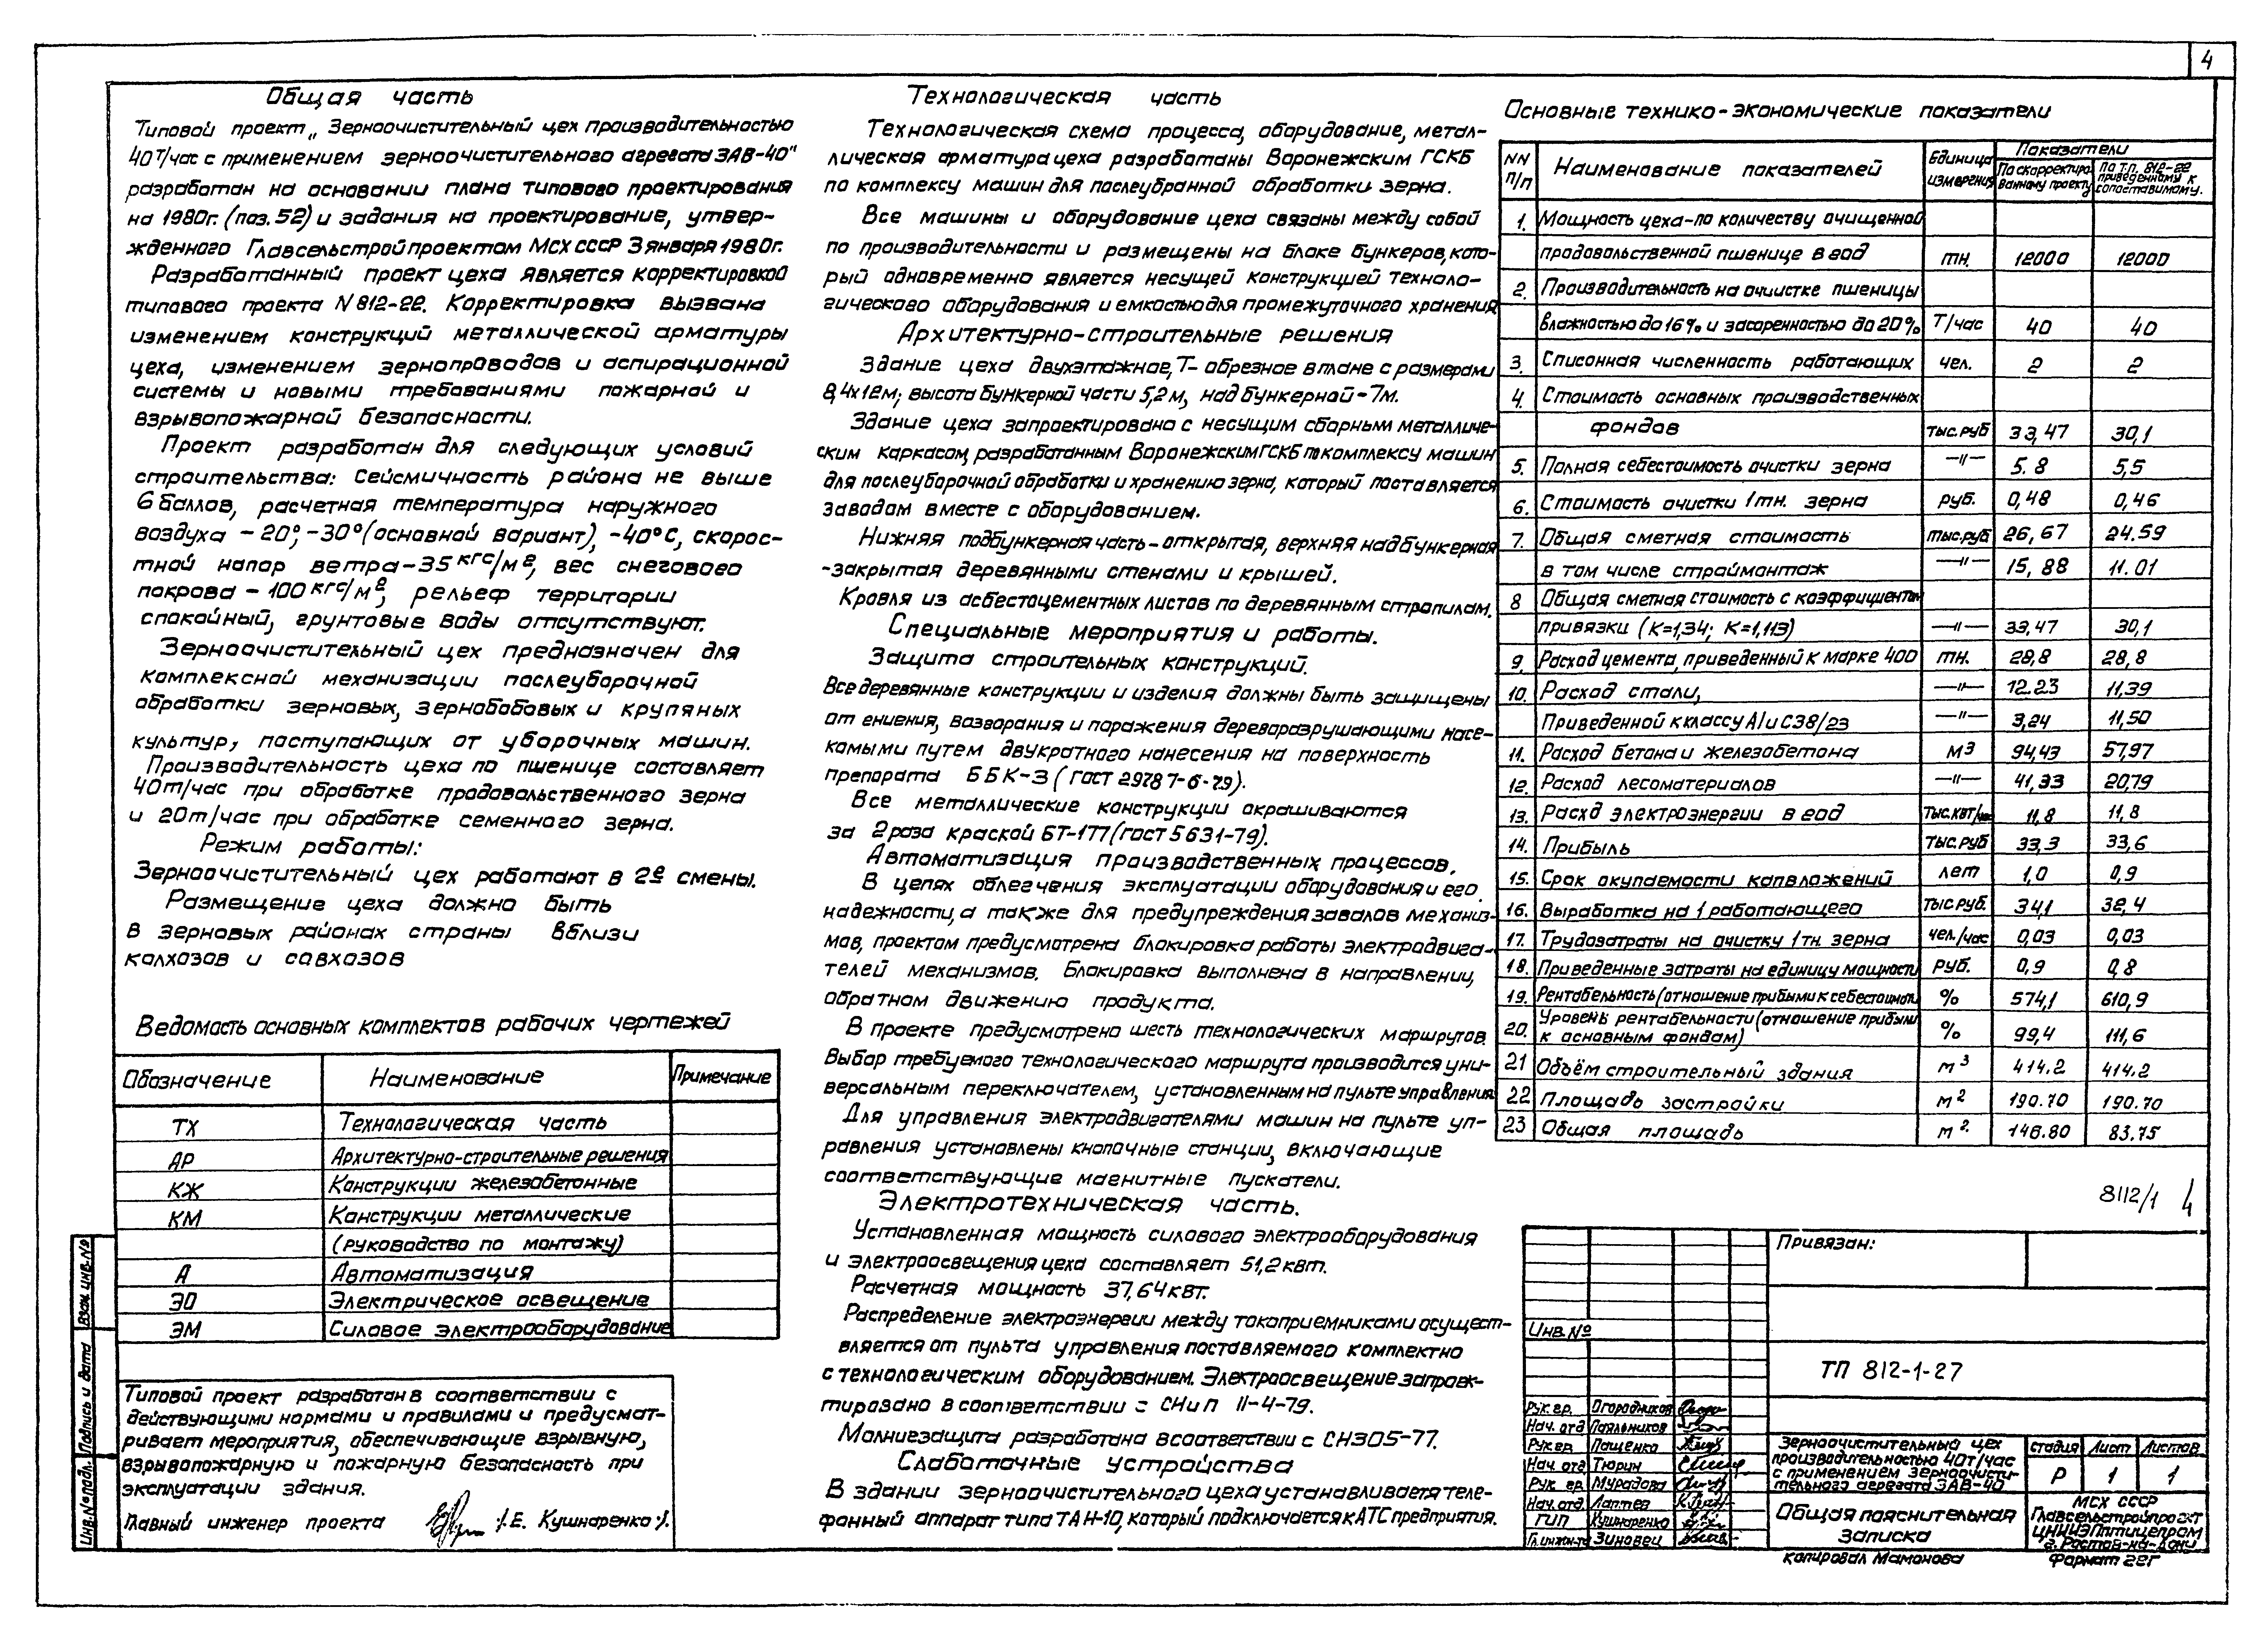 4
Общая часть
Типовой проект „Зерноочистительный цех производительностью
40 т/час с применением зерноочистительного агрегата ЗАВ-40"
разработан на основании плана типового проектирования
на 1980г. (поз. 52) и задания на проектирование, утвер-
жденного Главсельстройпроектом Мсх ссср 3 января 1980г.
Разработанный проект цеха является корректировкой
типового проекта N 812-22. Корректировка вызвана
изменением конструкций металлической арматуры
цеха, изменением зернопроводов и аспирационной
системы и новыми требованиями пожарной и
взрывопожарной безопасности.
Проект разработан для следующих условий
строительства: Сейсмичность района не выше
6 баллов, расчетная температура наружного
воздуха -20°; -30° (основной вариант), -40°С, скорос-
тной напор ветра-35 кгс/м², вес снегового
покрова - 100 кгс/м², рельеф территории
спокойный, грунтовые воды отсутствуют.
Зерноочистительный цех предназначен для
комплексной механизации послеуборочной
обработки зерновых, зернобобовых и крупяных
культур, поступающих от уборочных машин.
Производительность цеха по пшенице составляет
40т/час при обработке продовольственного зерна
и 20т/час при обработке семенного зерна.
Режим работы:
Зерноочистительный цех работают в 2е смены.
Размещение цеха должно быть
в зерновых районах страны вблизи
колхозов и совхозов
Ведомость основных комплектов рабочих чертежей
Обозначение Наименование Примечание
ТХ Технологическая часть
АР Архитектурно-строительные решения
КЖ Конструкции железобетонные
КМ Конструкции металлические
(руководство по монтажу)
А Автоматизация
ЭО Электрическое освещение
ЭМ Силовое электрооборудование
Типовой проект разработан в соответствии с
действующими нормами и правилами и предусмат-
ривает мероприятия, обеспечивающие взрывную,
взрывопожарную и пожарную безопасность при
эксплуатации здания.
Главный инженер проекта /.Е. Кушнаренко/.
Взам. инв. №
Подпись и дата
Инв. № подл.
Технологическая часть
Технологическая схема процесса, оборудование, метал-
лическая арматура цеха разработаны Воронежским ГСКБ
по комплексу машин для послеубранной обработки зерна.
Все машины и оборудование цеха связаны между собой
по производительности и размещены на блоке бункеров, кото-
рый одновременно является несущей конструкцией техноло-
гического оборудования и емкостью для промежуточного хранения
Архитектурно-строительные решения
Здание цеха двухэтажное, Т- обрезное в плане с размерами
8,4х12м; высота бункерной части 5,2 м, над бункерной-7м.
Здание цеха запроектировано с несущим сборным металличе-
ским каркасом, разработанным Воронежским ГСКБ по комплексу машин
для послеуборочной обработки и хранению зерна, который поставляется
заводом вместе с оборудованием.
Нижняя подбункерная часть - открытая, верхняя надбункерная
-закрытая деревянными стенами и крышей.
Кровля из асбестоцементных листов по деревянным стропилам.
Специальные мероприятия и работы.
Защита строительных конструкций.
Все деревянные конструкции и изделия должны быть защищены
от гниения, возгорания и поражения дереворазрушающими насе-
комыми путем двукратного нанесения на поверхность
препарата ББК-3 (ГОСТ 29787-6-79).
Все металлические конструкции окрашиваются
за 2 раза краской БТ-177 (гост 5631-79).
Автоматизация производственных процессов.
В целях облегчения эксплуатации оборудования и его
надежности, а также для предупреждения завалов механиз-
мов, проектом предусмотрена блокировка работы электродвига-
телей механизмов. Блокировка выполнена в направлении,
обратном движению продукта.
В проекте предусмотрено шесть технологических маршрутов
Выбор требуемого технологического маршрута производится уни-
версальным переключателем, установленным на пульте управления
Для управления электродвигателями машин на пульте уп-
равления установлены кнопочные станции, включающие
соответствующие магнитные пускатели.
Электротехническая часть.
Установленная мощность силового электрооборудования
и электроосвещения цеха составляет 51,2 квт.
Расчетная мощность 37,64 квт.
Распределение электроэнергии между токоприемниками осущест-
вляется от пульта управления поставляемого комплектно
с технологическим оборудованием. Электроосвещение запроек-
тировано в соответствии с СНиП II-4-79.
Молниезащита разработана в соответствии с СН305-77.
Слаботочные устройства
В здании зерноочистительного цеха устанавливается теле-
фонный аппарат типа ТАН-10, который подключается к АТС предприятия.
Основные технико-экономические показатели
NN п/п Наименование показателей Единица измерения Показатели
По скорректиро-ванному проекту По Т.П. 812-22 приведенному к сопоставимому.
1. Мощность цеха-по количеству очищенной
продовольственной пшенице в год тн. 12000 12000
2. Производительность на очистке пшеницы
влажностью до 16% и засоренностью до 20% Т/час 40 40
3. Списочная численность работающих чел. 2 2
4. Стоимость основных производственных
фондов тыс.руб 33,47 30,1
5. Полная себестоимость очистки зерна —"— 5.8 5,5
6. Стоимость очистки 1 тн. зерна руб. 0,48 0,46
7. Общая сметная стоимость тыс.руб 26,67 24.59
в том числе строймонтаж —"— 15,88 11.01
8 Общая сметная стоимость с коэффициентом
привязки (К=1,34; К=1,113) —"— 33,47 30,1
9. Расход цемента, приведенный к марке 400 тн. 28,8 28,8
10. Расход стали, —"— 12.23 11,39
Приведенной к классу АI и С38/23 —"— 3,24 11,50
11. Расход бетона и железобетона м³ 94,43 57,97
12. Расход лесоматериалов —"— 41,33 20,79
13. Расхд электроэнергии в год тыс.квт/час 11,8 11,8
14. Прибыль тыс.руб 33,3 33,6
15. Срок окупаемости капвложений лет 1,0 0,9
16. Выработка на 1 работающего тыс.руб. 34,1 32,4
17. Трудозатраты на очистку 1 тн. зерна чел./час 0,03 0,03
18. Приведенные затраты на единицу мощности руб. 0,9 0,8
19. Рентабельность (отношение прибыли к себестоимости % 574,1 610,9
20. Уровень рентабельности (отношение прибыли
к основным фондам) % 99,4 111,6
21 Объём строительный здания м³ 414.2 414.2
22 Площадь застройки м² 190.70 190.70
23 Общая площадь м². 146.80 83.75
8112/1 4
Привязан:
Инв. №
ТП 812-1-27
Рук.гр. Огородников
Нач. отд Паяльников
Рук.гр. Пащенко
Нач. отд Тюрин
Рук гр. Мурадова
Нач. отд. Лаптев
ГИП Кушнаренко
Гл.инжин-та Зиновец
Зерноочистительный цех
производительностью 40т/час
с применением зерноочисти-
тельного агрегата ЗАВ-40
стадия Лист Листов
Р 1 1
Общая пояснительная
записка
МСХ СССР
Главсельстройпроект
ЦНИИЭПптицепром
г. Ростов-на-Дону
копировал Мамонова Формат 22Г